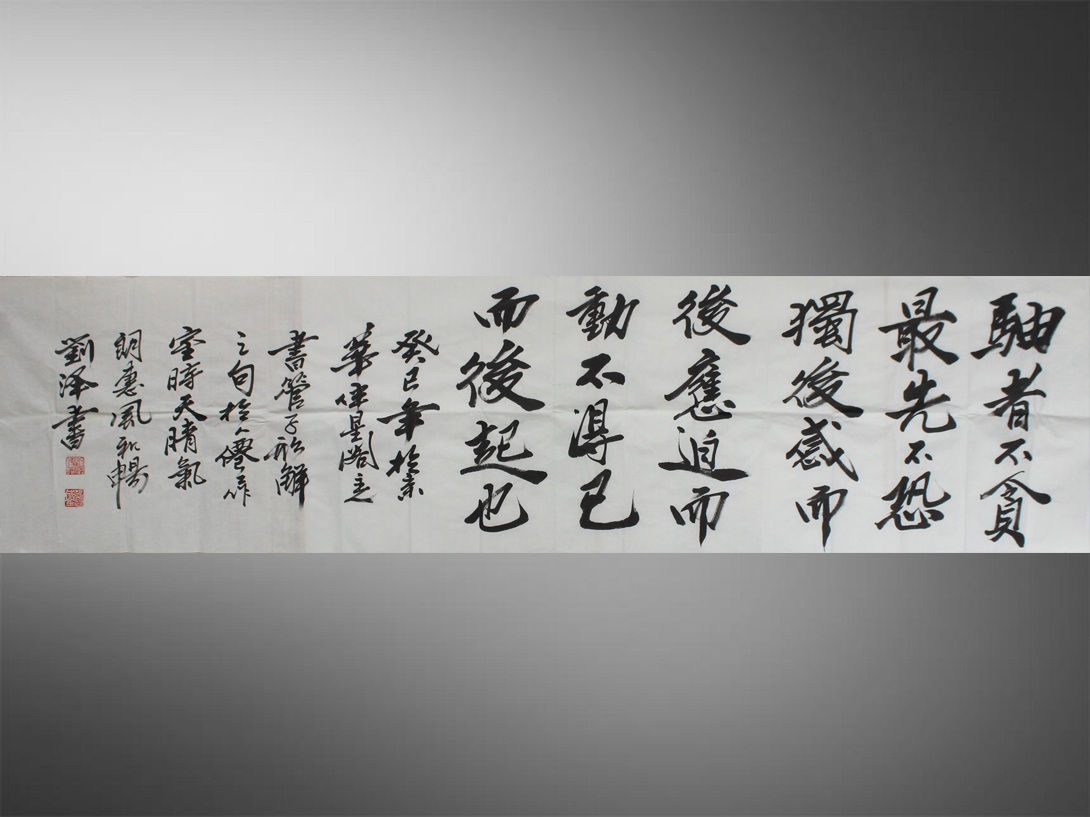 軸者不貪
最先不恐
獨後感而
後應迫而
動不得已
而後起也
癸巳年於京
華倚星閣主
書管子形解
之句於人僊之作
室時天晴氣
朗惠風和暢
劉泽書